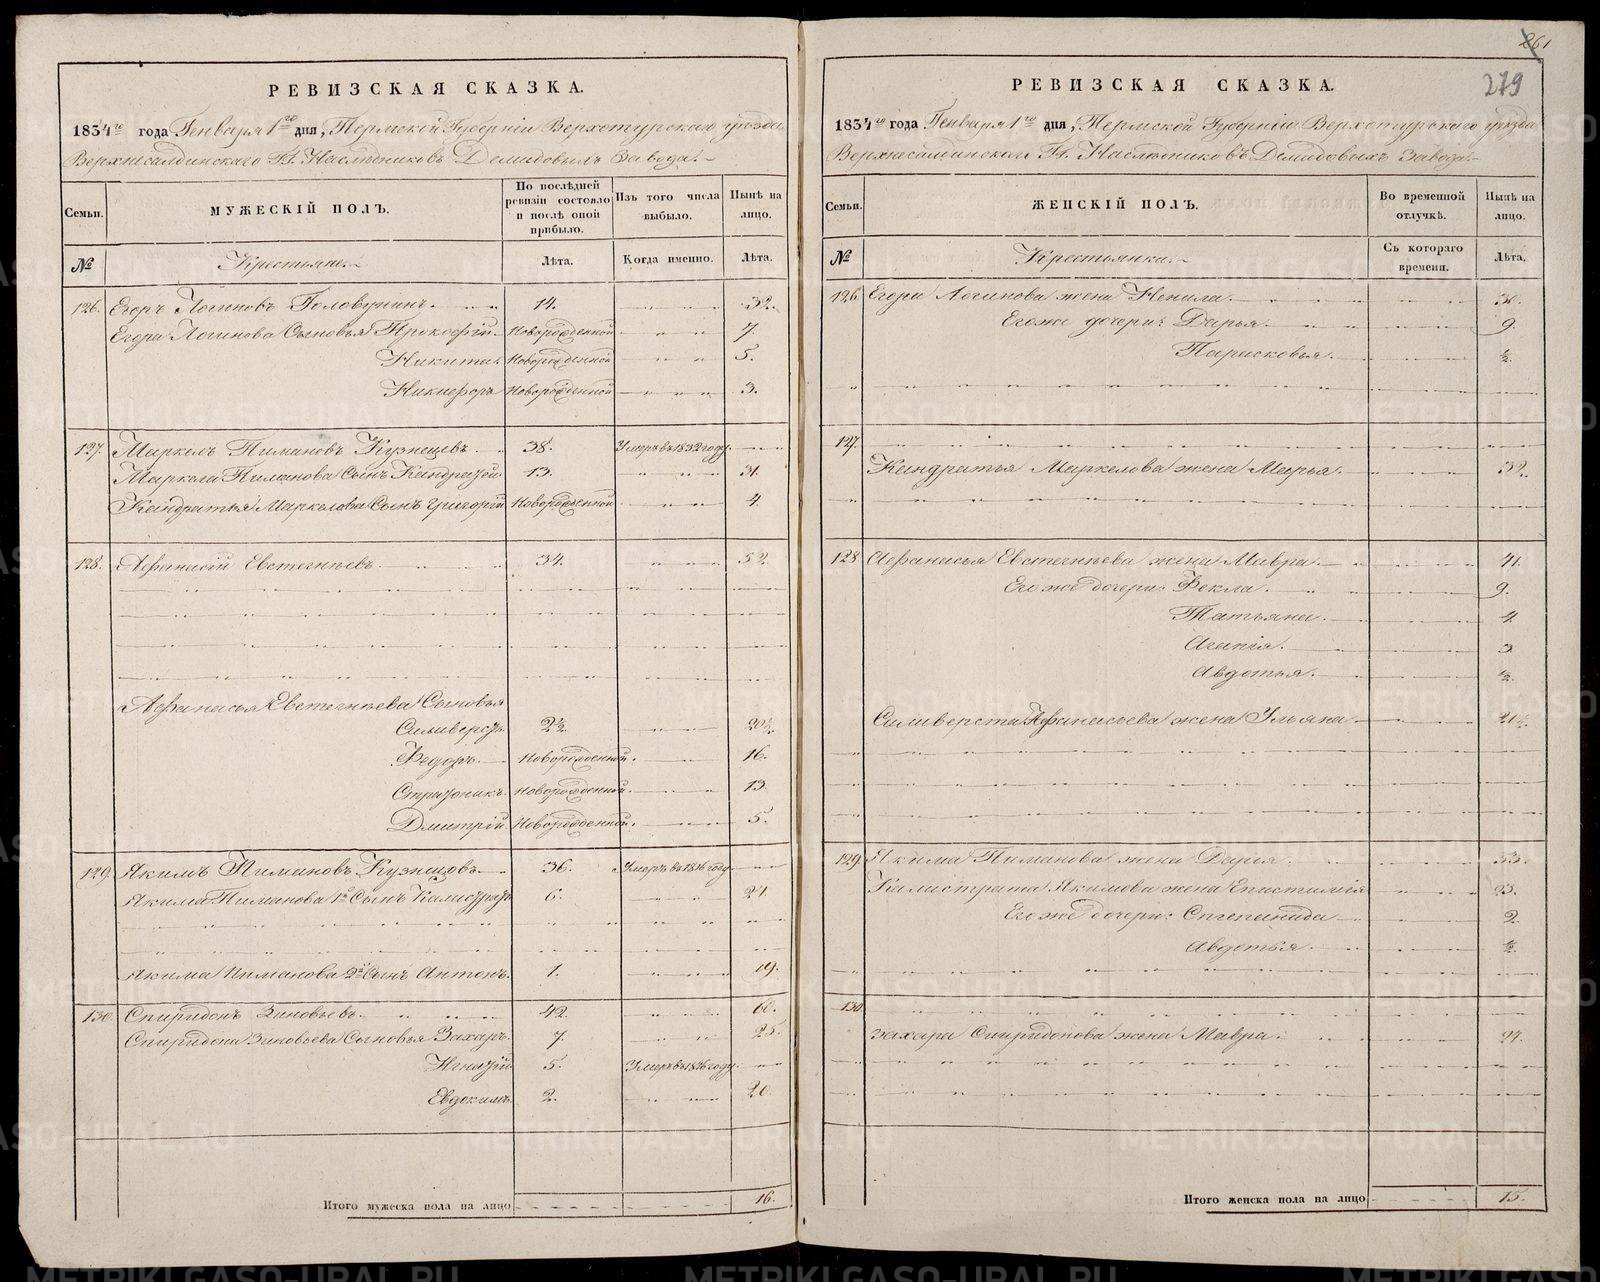 РЕВИЗСКАЯ СКАЗКА.
1834го года Генваря 1го дня, Пермской Губерніи Верхотурскаго уѣзда
Верхнесалдинскаго Гг. Наслѣдниковъ Демидовыхъ Завода.
Семьи.
МУЖЕСКІЙ ПОЛЪ.
По послѣдней ревизіи состояло и послѣ оной прибыло.
Изъ того числа выбыло.
Нынѣ на лицо.
№
Крестьяне.
Лѣта.
Когда именно.
Лѣта.
126. Егоръ Логиновъ Головунинъ. 14. 32.
Егора Логинова Сыновья Прокофій Новорожденной 7.
Никита. Новорожденной 5.
Никифоръ Новорожденной 3.
127. Маркелъ Пимановъ Кузнецовъ. 38. Умеръ въ 1832 году.
Маркела Пиманова Сынъ Кандратій 13. 31.
Кандратья Маркелова Сынъ Григорій Новорожденной 4.
128. Афанасій Евстегнѣевъ. 34. 52.
Афанасья Евстегнѣева Сыновья
Силиверстъ 2½ 20½
Федоръ Новорожденной. 16.
Стратоникъ Новорожденной. 13.
Дмитрій Новорожденной. 5.
129. Якимъ Пимановъ Кузнецовъ 36. Умеръ въ 1816 году.
Якима Пиманова 1й Сынъ Калистратъ 6. 24.
Якима Пиманова 2й Сынъ Антонъ. 1. 19.
130. Спиридонъ Зиновьевъ. 42. 60.
Спиридона Зиновьева Сыновья Захаръ. 7. 25.
Игнатій 5. Умеръ въ 1816 году.
Евдокимъ 2. 20.
Итого мужеска пола на лицо 16.
261
279
РЕВИЗСКАЯ СКАЗКА.
1834го года Генваря 1го дня, Пермской Губерніи Верхотурскаго уѣзда
Верхнесалдинскаго Гг. Наслѣдниковъ Демидовыхъ Завода.
Семьи.
ЖЕНСКІЙ ПОЛЪ.
Во временной отлучкѣ.
Нынѣ на лицо.
№
Крестьянки.
Съ котораго времени.
Лѣта.
126. Егора Логинова жена Ненила. 30.
Его же дочери: Дарья. 9.
Парасковья. ½.
127.
Кандратья Маркелова жена Марья. 32.
128. Афанасья Евстегнѣева жена Мавра. 41.
Его же дочери: Фекла. 9.
Татьяна. 4.
Агапія. 3
Авдотья. ½.
Силиверста Афанасьева жена Ульяна 21½
129. Якима Пиманова жена Дарья. 53.
Калистрата Якимова жена Епистимія 23.
Его же дочери: Степанида 2.
Авдотья. ½.
130.
Захара Спиридонова жена Мавра. 24.
Итого женска пола на лицо 15.
METRIKI.GASO-URAL.RU